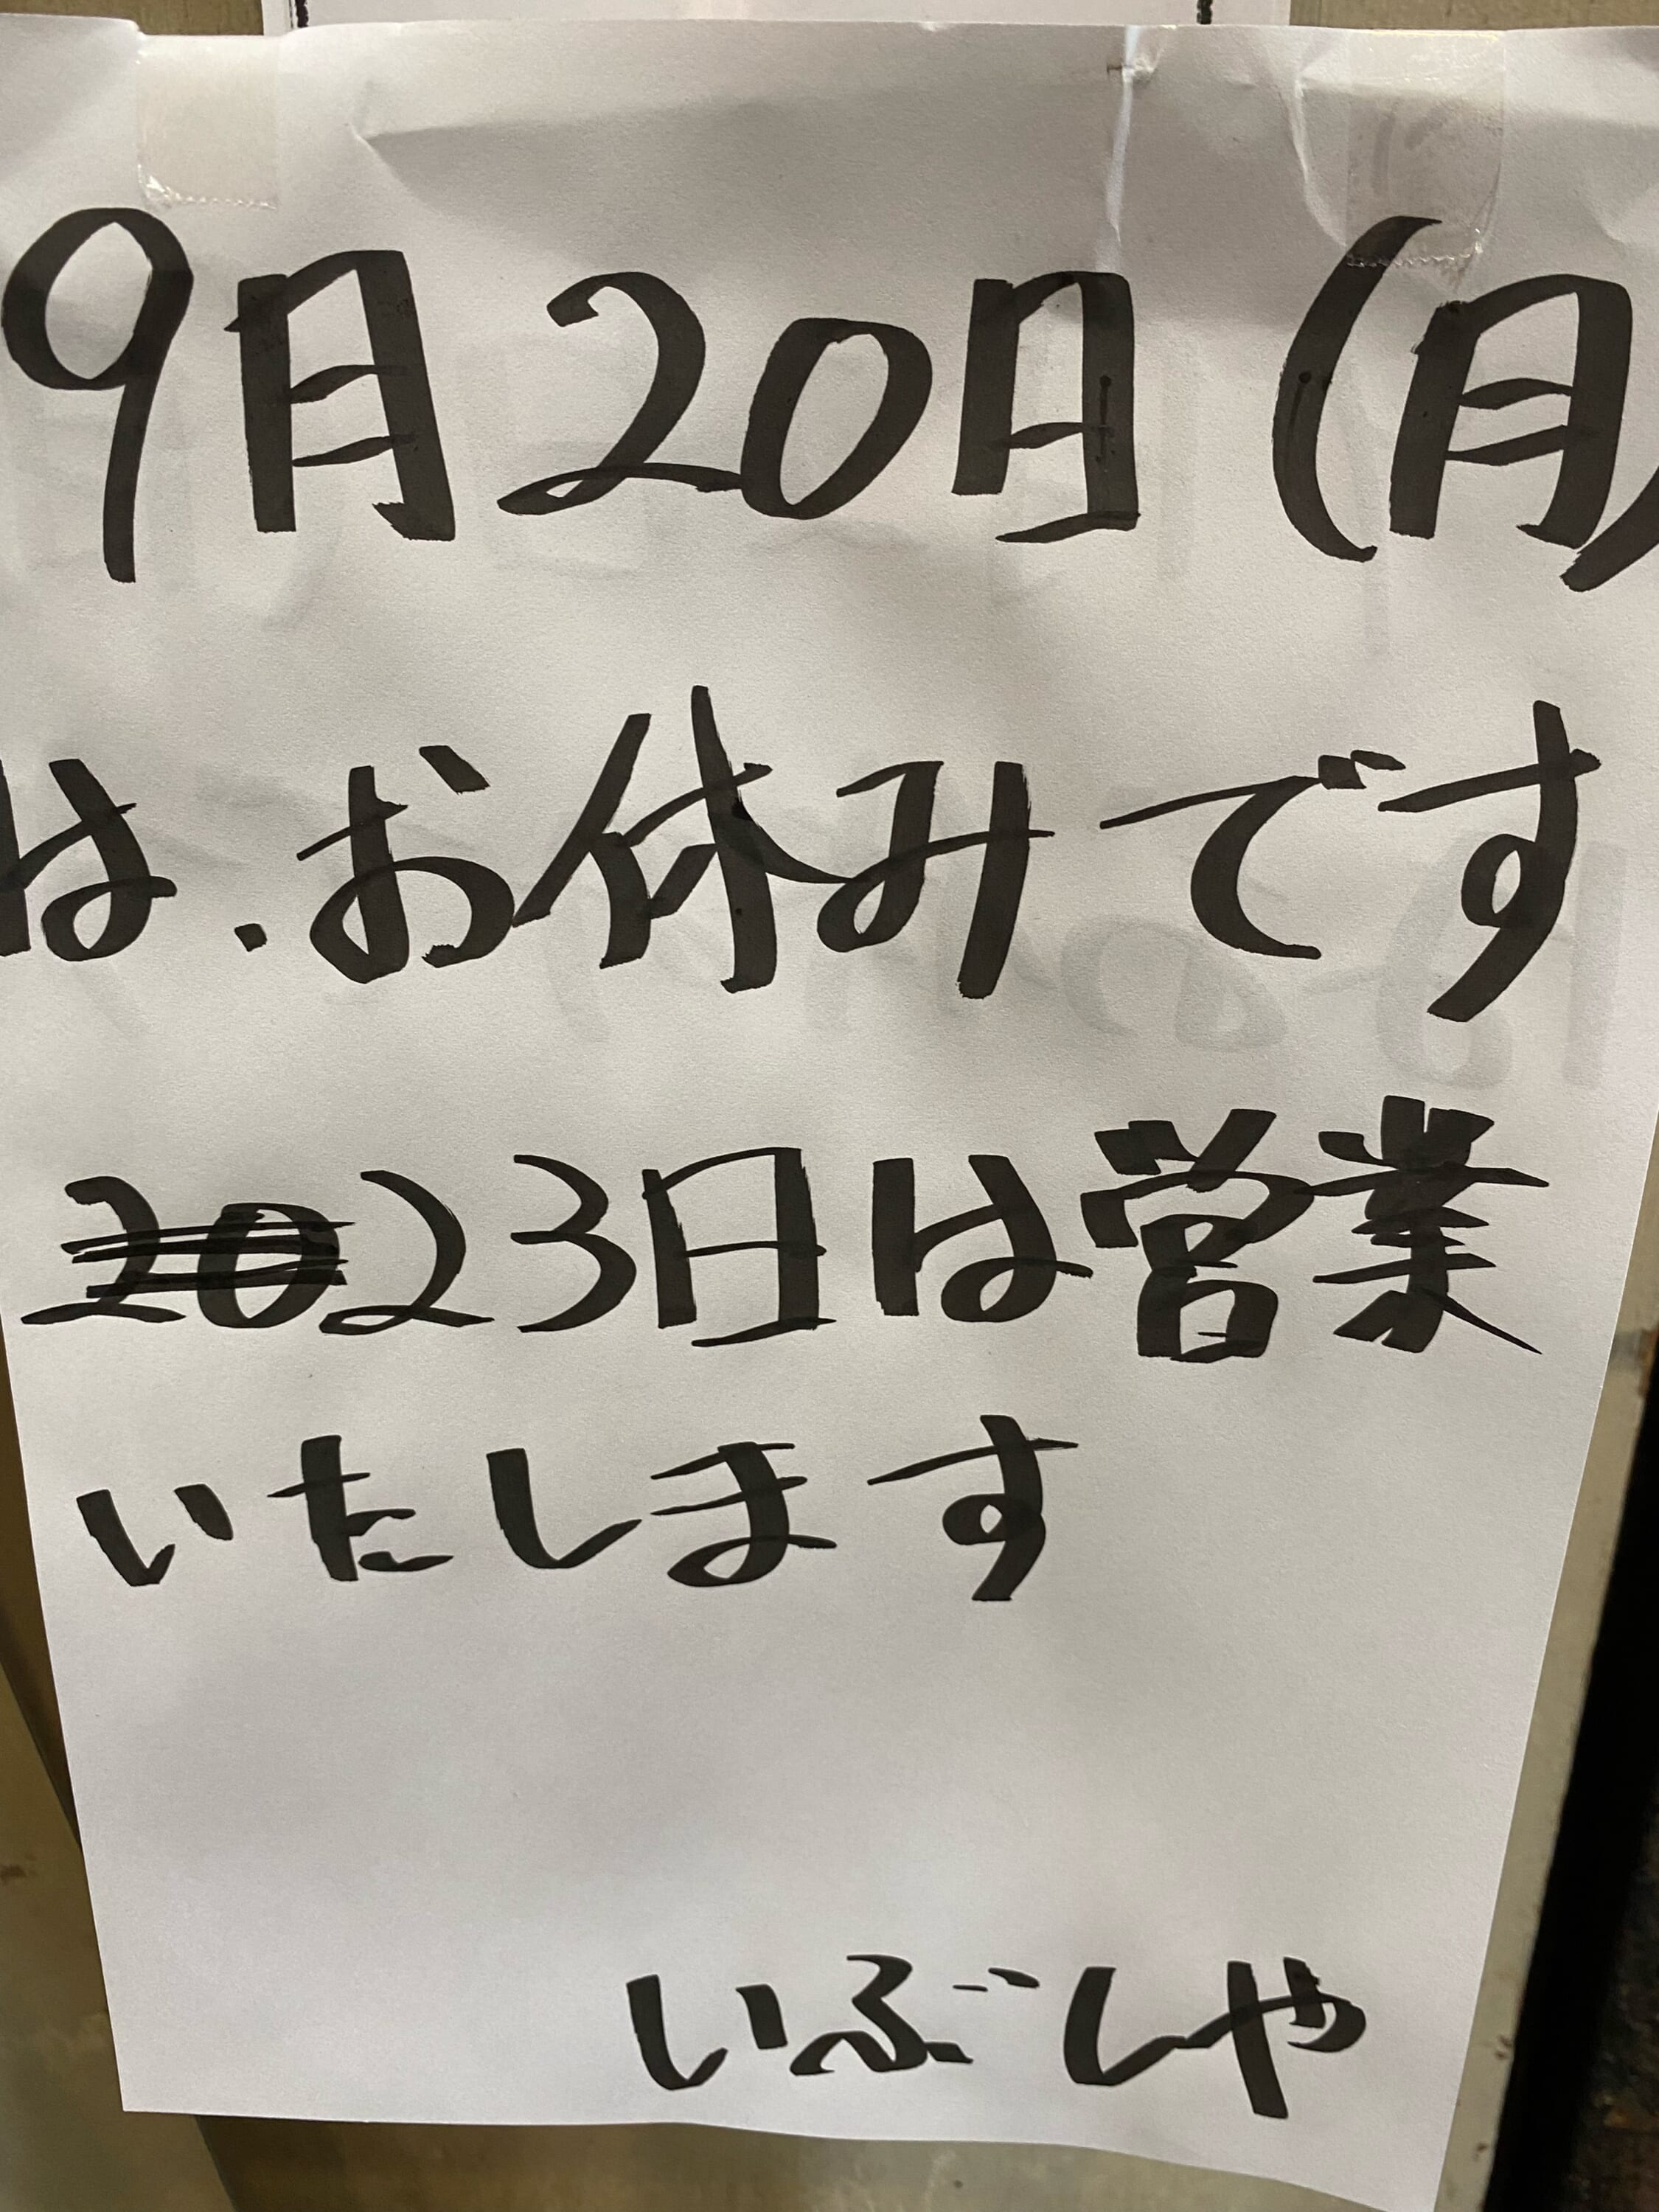 9月20日(月)
は.お休みです
23日は営業
いたします
いぶしや